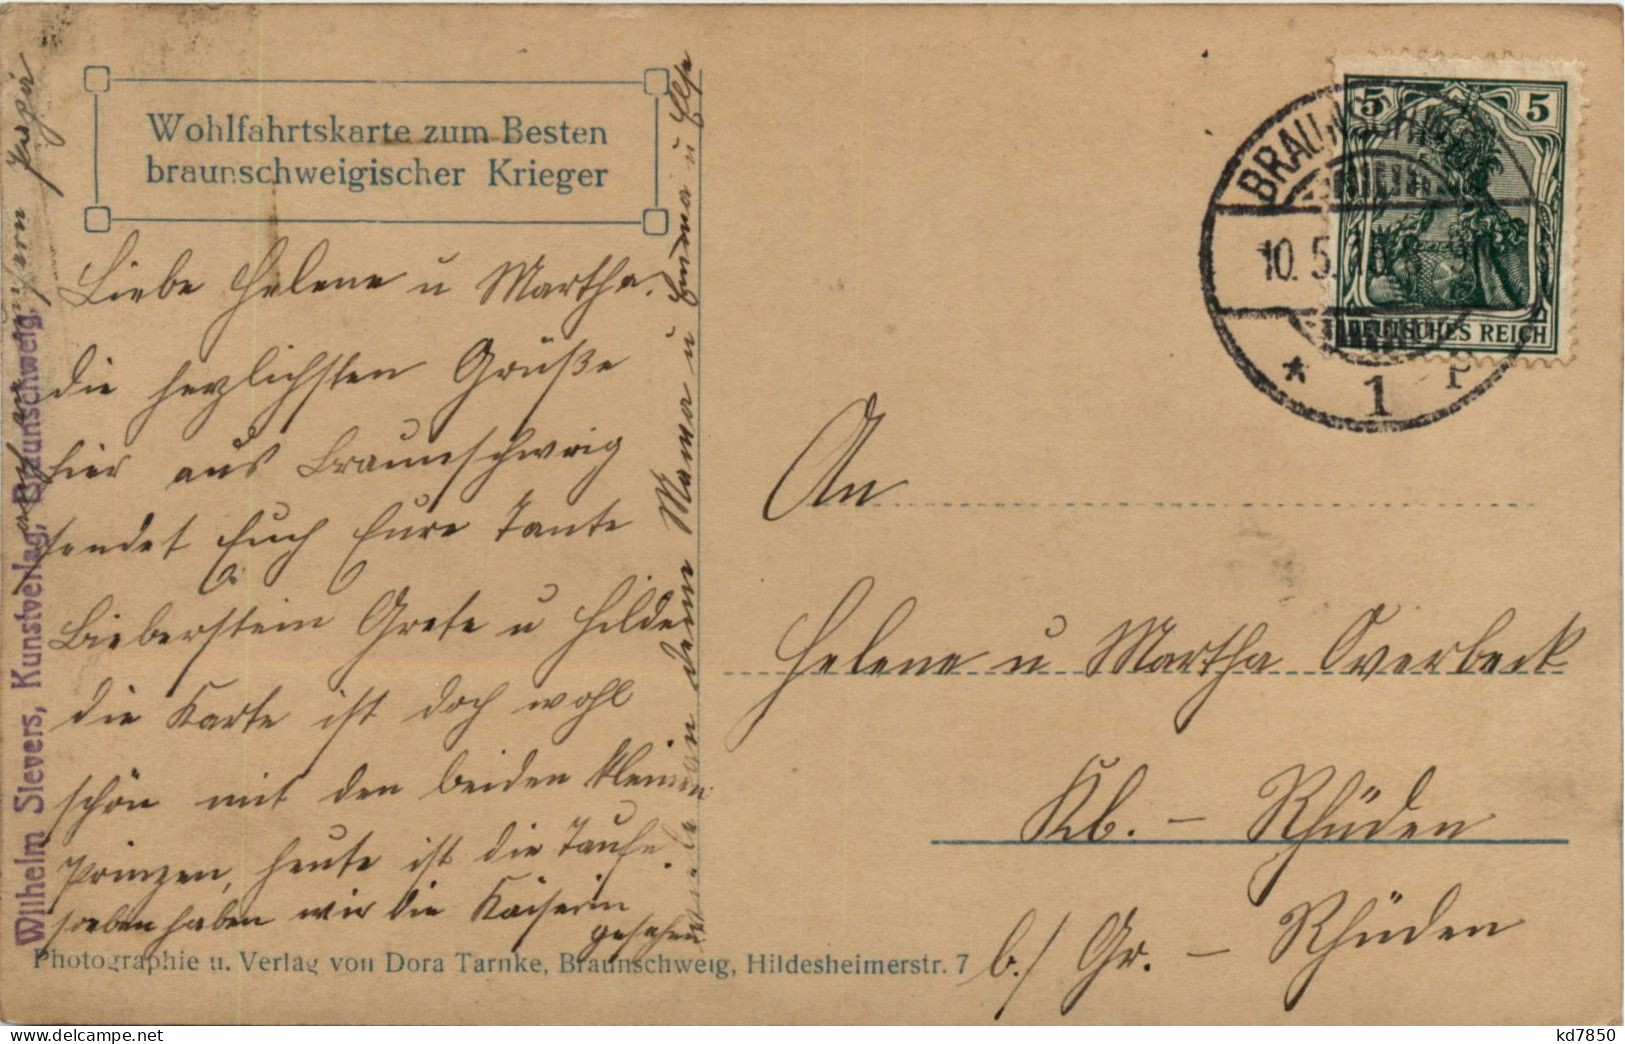 Wohlfahrtskarte zum Besten
braunschweigischer Krieger
Liebe Helene u Martha.
die herzlichsten Grüße
hier aus Braunschweig
sendet Euch Eure Tante
Bieberstein Grete u Hilde
die Karte ist doch wohl
schön mit den beiden kleinen
Prinzen, heute ist die Taufe.
soeben haben wir die Kaiserin
gesehen
deine Mama u Emma u Else
Wilhelm Sievers, Kunstverlag, Braunschweig.
Photographie u. Verlag von Dora Tarnke, Braunschweig, Hildesheimerstr. 7
5 5
DEUTSCHES REICH
BRAUNSCHWEIG
10. 5.
* 1
An
Helene u Martha Overbeck
Kl. - Rhüden
b./ Gr. - Rhüden
kd7850